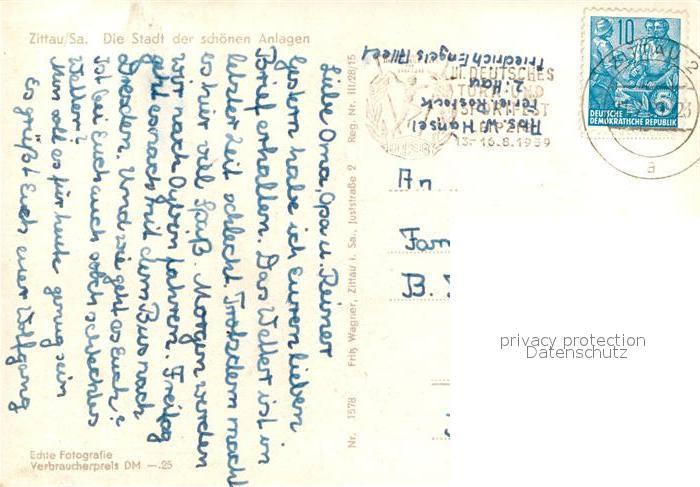 Zittau/Sa. Die Stadt der schönen Anlagen
Liebe Oma, Opa u. Reiner
gestern habe ich Euren lieben
Brief erhalten. Das Wetter ist in
letzter Zeit schlecht. Trotzdem macht
es hier viel Spaß. Morgen werden
wir nach Oybin fahren. Freitag
geht es nach mit dem Bus nach
Dresden. Und wie geht es Euch?
Ist bei Euch auch solch schlechtes
Wetter?
Nun soll es für heute genug sein
Es grüßt Euch euer Wolfgang
Echte Fotografie
Verbraucherpreis DM —.25
Nr. 1578 Fritz Wagner, Zittau i. Sa., Juststraße 2 Reg. Nr. III/28/15
Abs. W. Hansel
Z. Hau
Friedrich Engels Allee
III. DEUTSCHES
TURN- UND
SPORTFEST
LEIPZIG
13.-16.8.1959
10
5
DEUTSCHE
DEMOKRATISCHE REPUBLIK
a
An
Fam
B.
privacy protection
Datenschutz